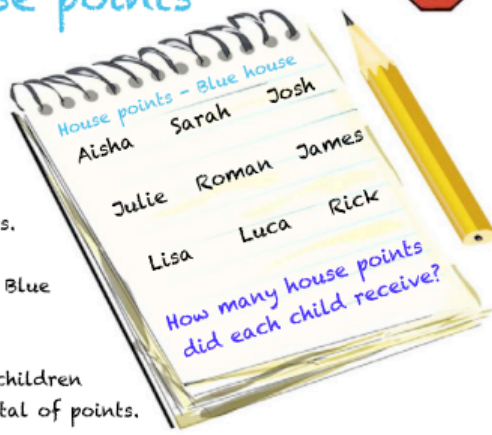 se points
House points - Blue house
Aisha Sarah Josh
Julie Roman James
s.
Lisa Luca Rick
Blue
How many house points
did each child receive?
children
tal of points.